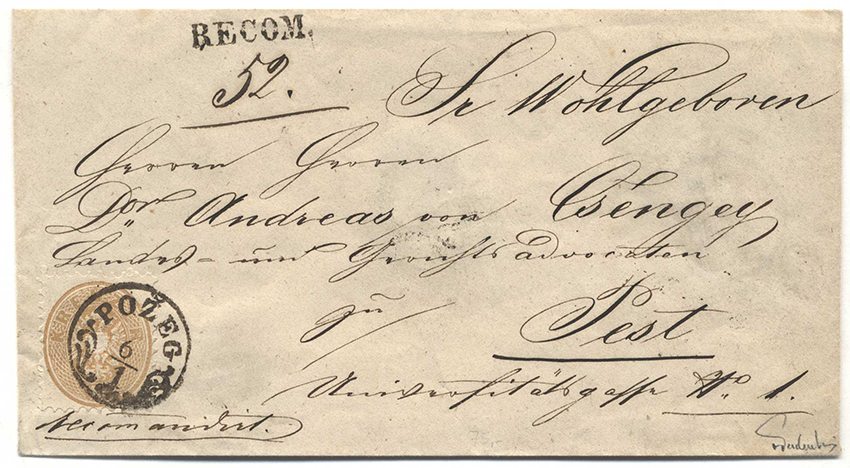 RECOM.
52.
Sr Wohlgeboren
Herren Herren
Dor Andreas von Csengey
Landes- und Gerichtsadvocaten
zu
Pest
Universitätsgasse No 1.
POŽEGA
6/1
recomandirt.